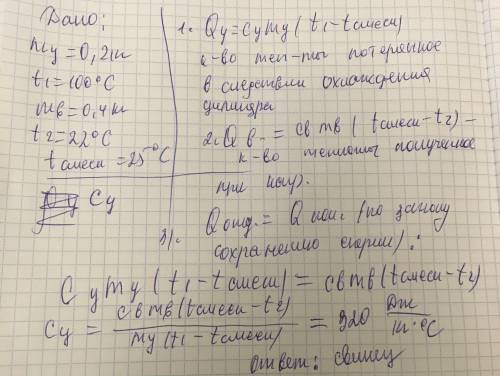 Дано:
mц=0,2кг
t1=100°C
mв=0,4кг
t2=22°C
tсмеси=25°C
Cц
1. Qц=Cцmц(t1-tсмеси)
к-во теп-ты потерянное
в следствии охлаждения
цилиндра
2. Qв.=cвmв(tсмеси-t2)-
к-во теплоты полученное
при
3). Qотд.=Qпол. (по закону
сохранению енергии):
Cцmц(t1-tсмеси)=cвmв(tсмеси-t2)
Cц=cвmв(tсмеси-t2)/mц(t1-tсмеси)=320 Дж/кг·°C
ответ: свинец